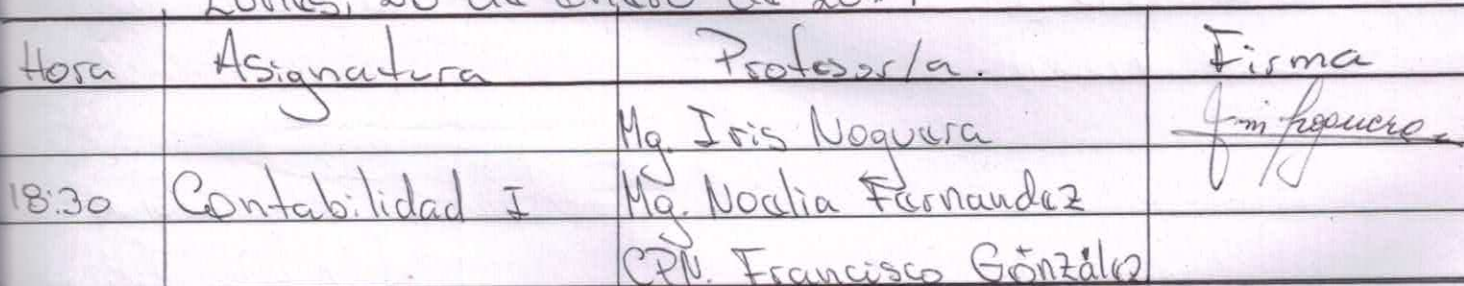 Hora Asignatura Profesor/a. Firma
Mg. Iris Noguera
18:30 Contabilidad I Mg. Noelia Fernandez
CPN. Francisco González